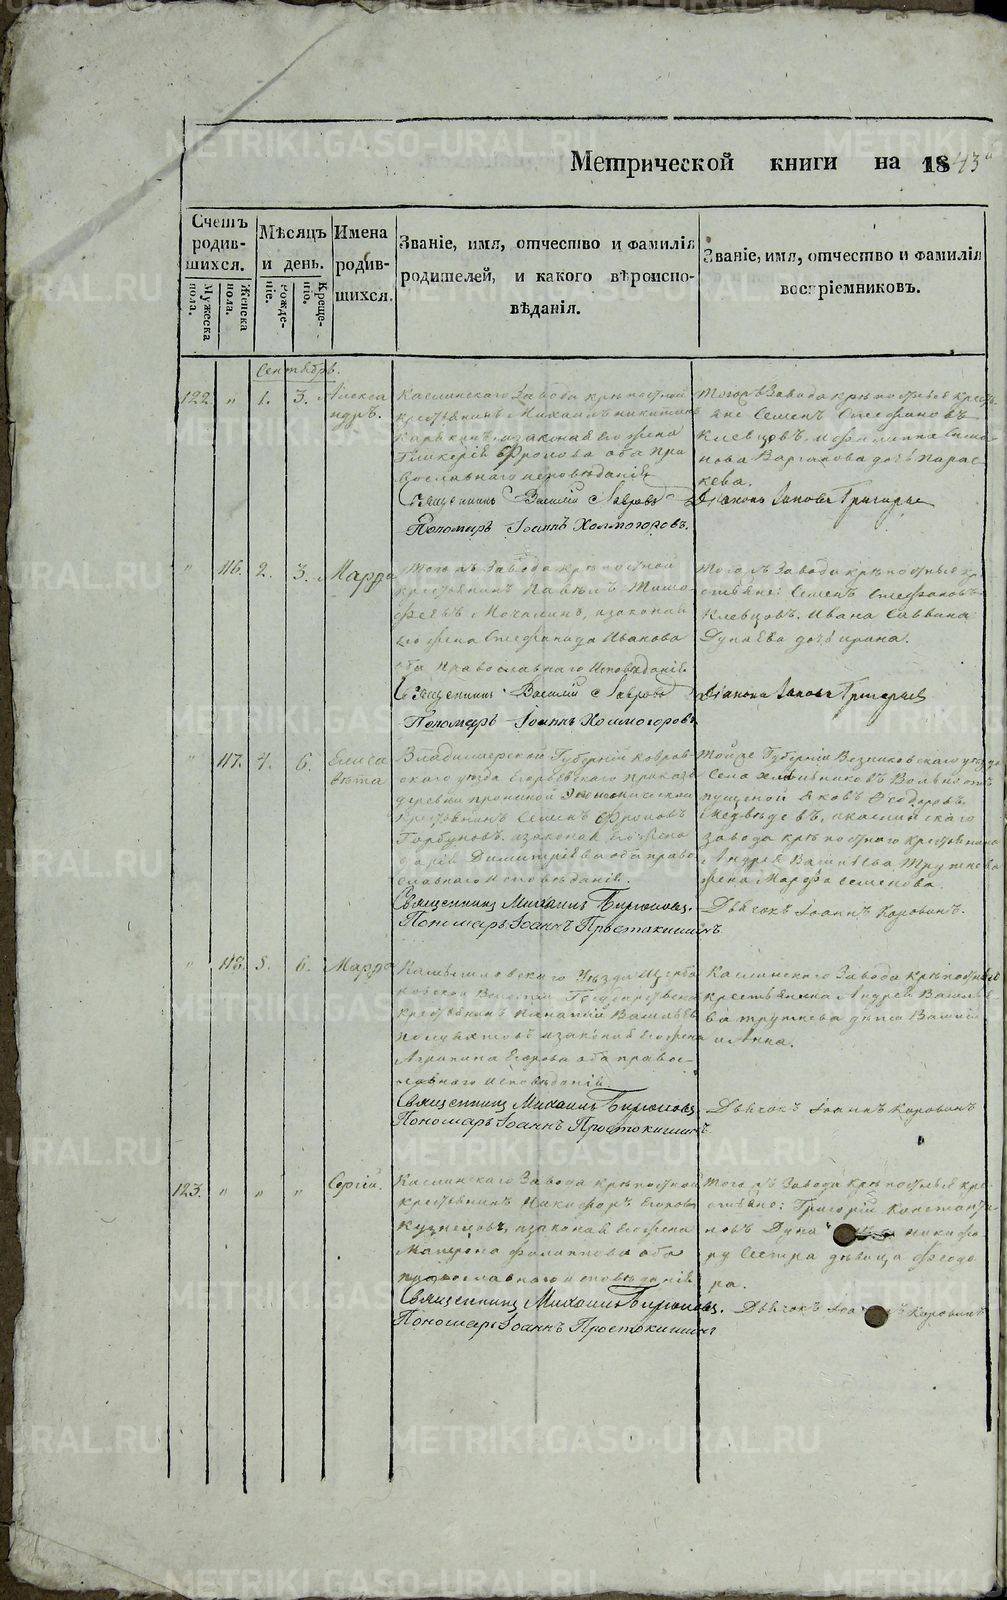 METRIKI.GASO-URAL.RU
Метрической книги на 1843
Счетъ родив-шихся.
Мужеска пола.
Женска пола.
Мѣсяцъ и день.
Рожде-ніе.
Креще-ніе.
Имена родив-шихся.
Званіе, имя, отчество и фамилія
родителей, и какого вѣроиспо-
вѣданія.
Званіе, имя, отчество и фамилія
воспріемниковъ.
Сентябрь.
122 „ 1. 3. Алекса
ндръ.
Каслинскаго Завода крѣпостной
крестьянинъ Михаилъ Никитинъ
законная его жена
Гликерія Фролова оба пра
вославнаго исповѣданія
Священникъ Василій Лавровъ
Пономарь Іоаннъ Холмогоровъ.
Тогожъ Завода крѣпостные кресть
яне Семенъ Стефановъ
Клевцовъ, и Филиппа Симо
нова Варганова дочь Парас
кева.
Діаконъ Григорьевъ
„ 116. 2. 3. Марфа
Тогожъ Завода крѣпостной
крестьянинъ Павелъ Тимо
феевъ Мочалинъ, и законная
его жена Стефанида Иванова
оба Православнаго Исповѣданія
Священникъ Василій Лавровъ
Пономарь Іоаннъ Холмогоровъ
Тогожъ Завода крѣпостные кр
естьяне: Семенъ Стефановъ
Клевцовъ. Ивана Саввина
Дунаева дочь Ирина.
Діаконъ Григорьевъ
„ 117. 4. 6. Елиса
вета
Владимирской Губерніи Ковров
скаго уѣзда Егорьевскаго приказа
деревни Прониной Экономической
Крестьянинъ Семенъ Фроловъ
Горбуновъ и законная его жена
Дарія Димитріева оба право
славнаго исповѣданія.
Священникъ Михаилъ Бирюковъ.
Пономарь Іоаннъ Простокишинъ
Тойже Губерніи Вязниковскаго уѣзда
Села Вольноот
пущеной Яковъ Феодоровъ
Медвѣдевъ, и Каслинскаго
завода крѣпостнаго крестьянина
Андрея Васильева Трутнева
жена Марфа Семенова
Дьячокъ Іоаннъ Коровинъ.
„ 118. 5. 6. Марфа
Камышловскаго Уѣзда
Волости Государственной
крестьянинъ Васильевъ
и законная его жена
Агрипина Егорова оба правос-
лавнаго исповѣданія
Священникъ Михаилъ Бирюковъ
Пономарь Іоаннъ Простокишинъ
Каслинскаго Завода крѣпостныя
крестьянина Андрея Василье
ва Трутнева дѣти Василій
и Анна.
Дьячокъ Іоаннъ Коровинъ
123. „ „ „ Сергій.
Каслинскаго Завода крѣпостной
крестьянинъ Никифоръ Егоровъ
Кузнецовъ, и законная его жена
Матрона Филиппова оба
православнаго исповѣданія
Священникъ Михаилъ Бирюковъ.
Пономарь Іоаннъ Простокишинъ
Тогожъ Завода крѣпостные кре
стьяне: Григорій Константи
новъ Никифо
ру Сестра дѣвица Феодо
ра.
Дьячокъ Іоаннъ Коровинъ